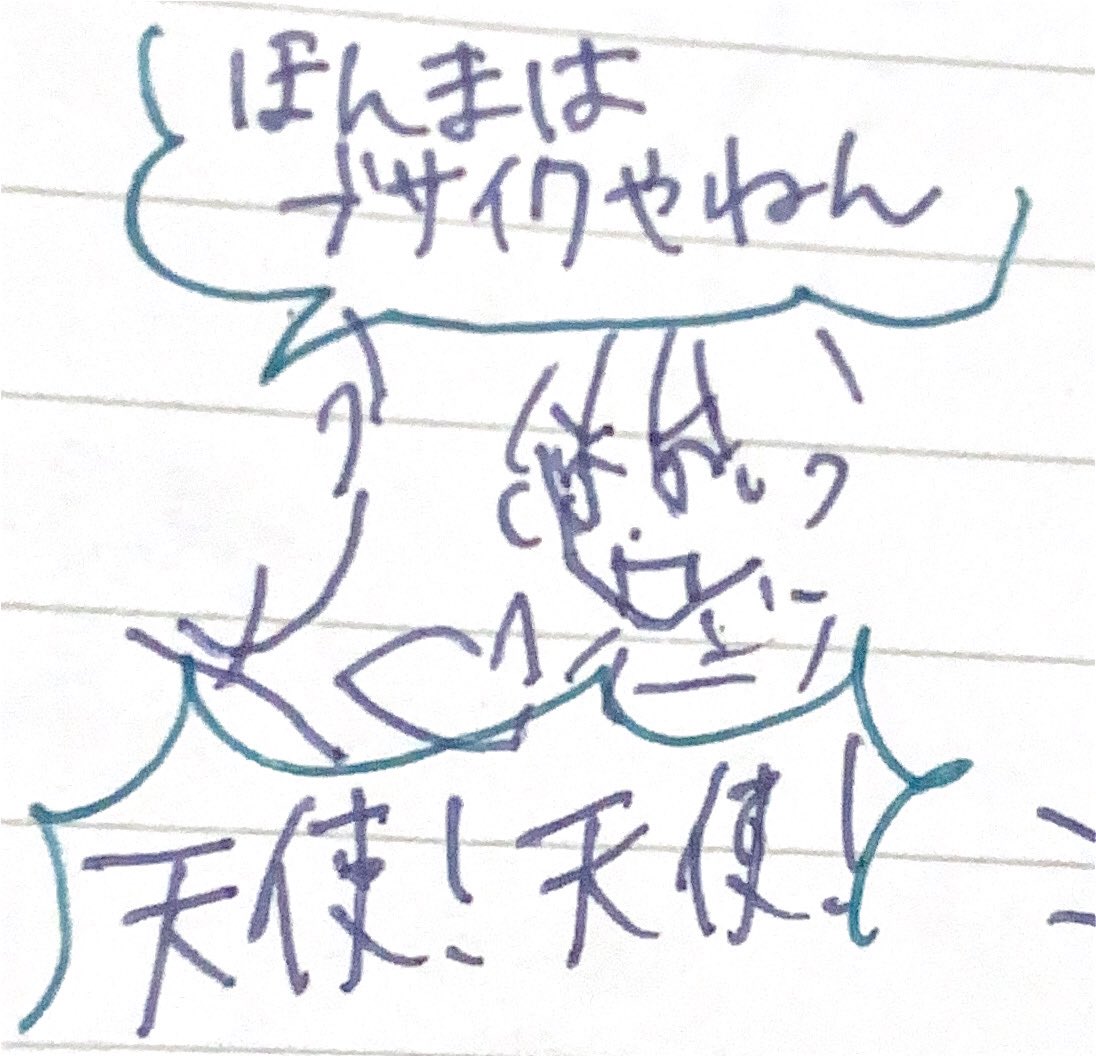 ほんまは
ブサイクやねん
天使!天使!